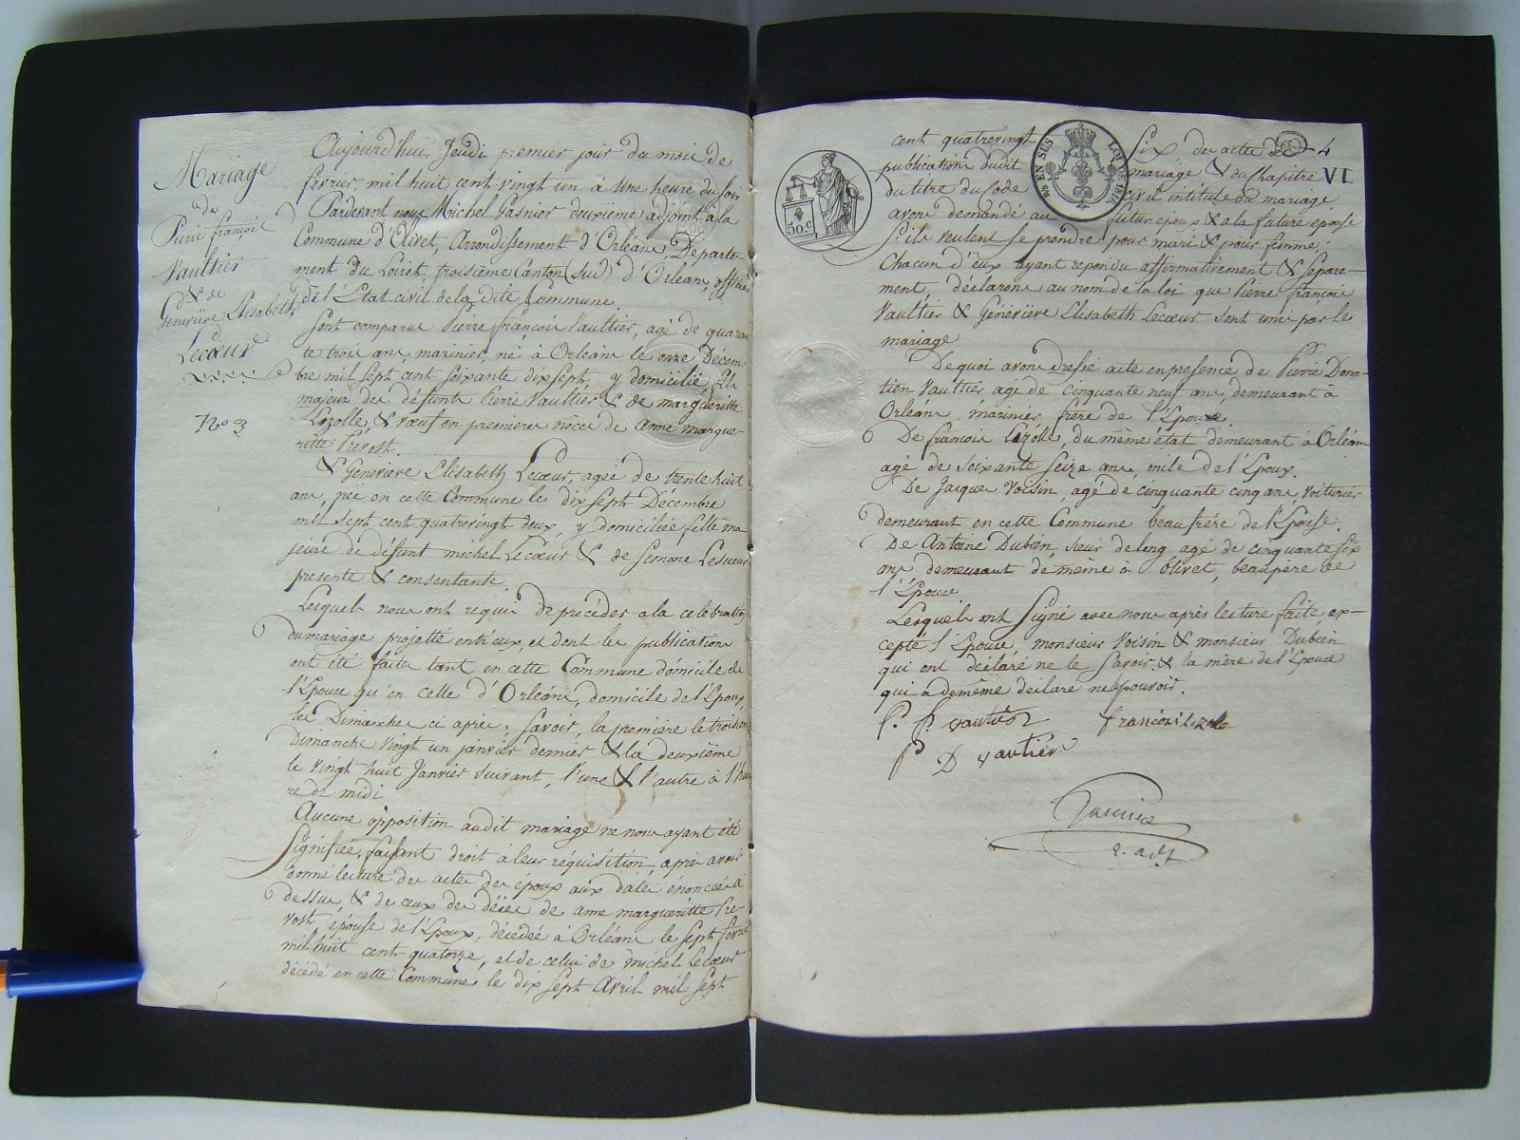 Mariage
de
Pierre françois
Vaultier
& de
Genevieve Elisabeth
Lecœur
No 3
Aujourd'hui Jeudi premier jour du mois de
fevrier mil huit cent vingt un à une heure du soir
Pardevant nous Michel Pasnier deuxième adjoint à la
Commune d'Olivet, Arrondissement d'Orléans, Departe-
ment du Loiret, troisième Canton (Sud) d'Orléans, officier
de l'Etat civil de la dite Commune.
Sont comparus Pierre françois Vaultier, agé de quaran
te trois ans, marinier, né à Orléans le onze Décem-
bre mil sept cent soixante dix sept, y domicilié, fils
majeur de défunt Pierre Vaultier & de margueritte
Lizolle, & veuf en premieres noces de Anne Margue-
ritte Prevost.
& Genevieve Elisabeth Lecœur, agée de trente huit
ans, née en cette Commune le dix sept Décembre
mil sept cent quatrevingt deux, y domiciliée fille ma
jeure de défunt michel Lecœur & de Simone Lesueur
presente & consentante.
Lesquels nous ont requis de procéder a la celebration
du mariage projetté entr'eux, et dont les publications
ont été faites tant en cette Commune domicile de
l'Epouse qu'en celle d'Orléans, domicile de l'Epoux,
les Dimanches ci après; savoir, la première le troisieme
Dimanche vingt un janvier dernier & la deuxième
le vingt huit Janvier suivant, l'une & l'autre à l'heu
re de midi
Aucune opposition audit mariage ne nous ayant été
Signifiée, faisant droit à leur réquisition, après avoir
donné lecture des actes des époux aux dates énoncées ci
dessus, & de ceux de décès de anne margueritte Pre-
vost, épouse de l'Epoux, décédée à Orléans le sept fevrier
mil huit cent quatorze, et de celui de michel Lecœur
décédé en cette Commune le dix sept Avril mil sept
cent quatrevingt dix des actes de 4
publication dudit mariage & du Chapitre VI
du titre du Code civil intitulé du mariage
avons demandé au futur epoux & a la future epouse
s'ils veulent se prendre pour mari & pour femme;
Chacun d'eux ayant répondu affirmativement & separe-
ment, déclarons au nom de la loi que Pierre françois
Vaultier & Génévieve Elisabeth Lecœur sont unis par le
mariage
50.c
EN SUS
De quoi avons dressé acte en presence de Pierre Dona-
tien Vaultier agé de Cinquante neuf ans, demeurant à
Orléans, marinier, frère de l'Epoux.
De françois Lizolle, du même état demeurant à Orléans
agé de soixante seize ans, oncle de l'Epoux.
De Jacques Voisin, agé de cinquante cinq ans, Voiturier
demeurant en cette Commune beaufrère de l'Epouse.
De Antoine Dubien, sieur de long agé de cinquante six
ans demeurant de même à Olivet, beaupère de
l'Epouse.
Lesquels ont Signé avec nous après lecture faite, ex-
cepté l'Epouse, monsieur Voisin & monsieur Dubien
qui ont déclaré ne le savoir & la mère de l'Epouse
qui a de même déclaré ne pouvoir.
P. f. vautier francois Lizole
P D vautier
Pasnier
2. adjt